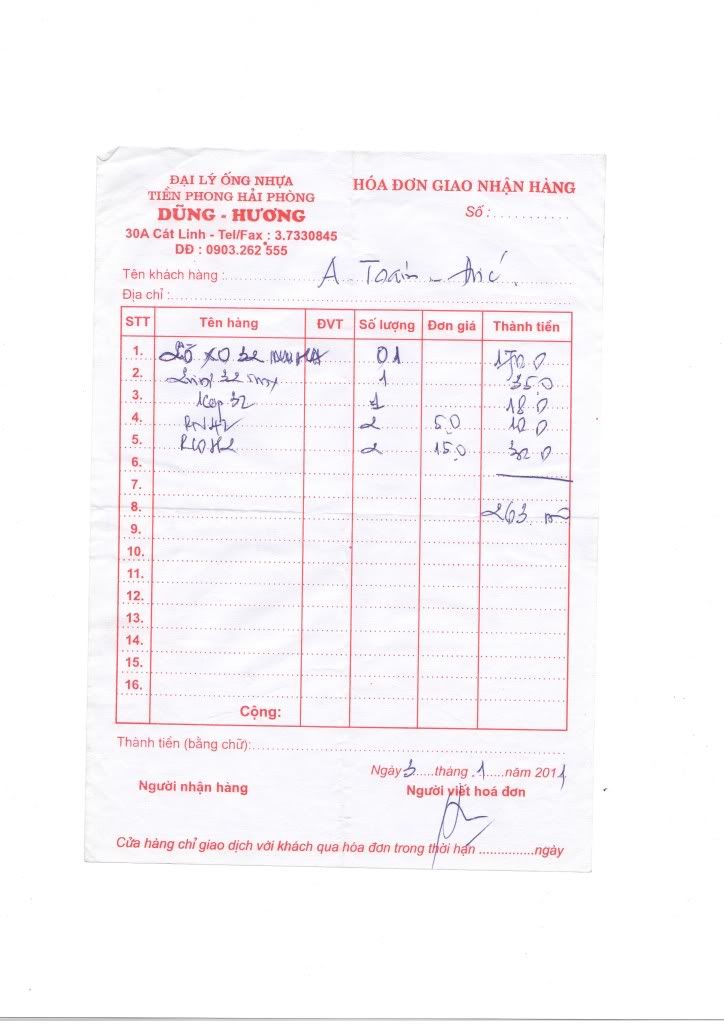 ĐẠI LÝ ỐNG NHỰA
TIỀN PHONG HẢI PHÒNG
DŨNG - HƯƠNG
30A Cát Linh - Tel/Fax : 3.7330845
DĐ : 0903.262 555
HÓA ĐƠN GIAO NHẬN HÀNG
Số : ...........
Tên khách hàng : A - Toán -
Địa chỉ :
STT Tên hàng ĐVT Số lượng Đơn giá Thành tiền
1. XO 32 01 170 0
2. 32 1 35.0
3. 32 1 18.0
4. 2 5.0 10.0
5. 2 15.0 30.0
6.
7.
8. 263
9.
10.
11.
12.
13.
14.
15.
16.
Cộng:
Thành tiền (bằng chữ):
Ngày 3 tháng 1 năm 2011
Người nhận hàng Người viết hoá đơn
Cửa hàng chỉ giao dịch với khách qua hóa đơn trong thời hạn ...............ngày